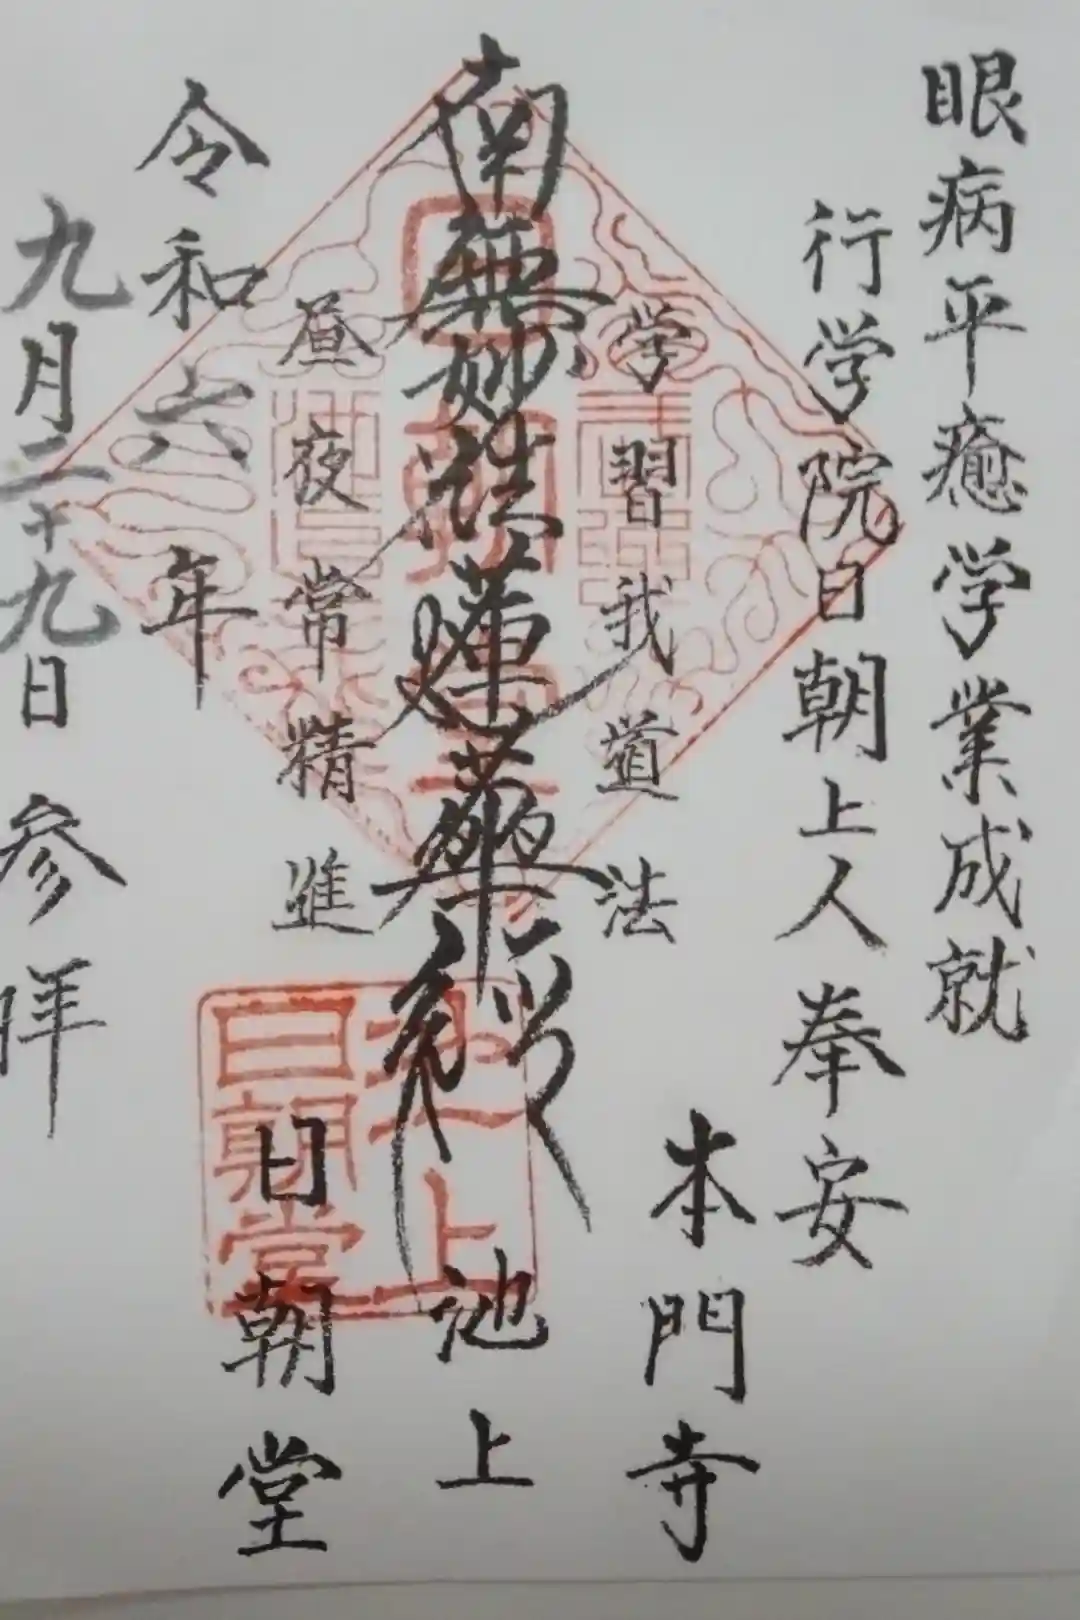 眼病平癒学業成就
行学院日朝上人奉安
学習我道法
南無妙法蓮華経
昼夜常精進
本門寺
池上
日朝堂
令和六年
九月二十九日 参拝
池上
日朝堂